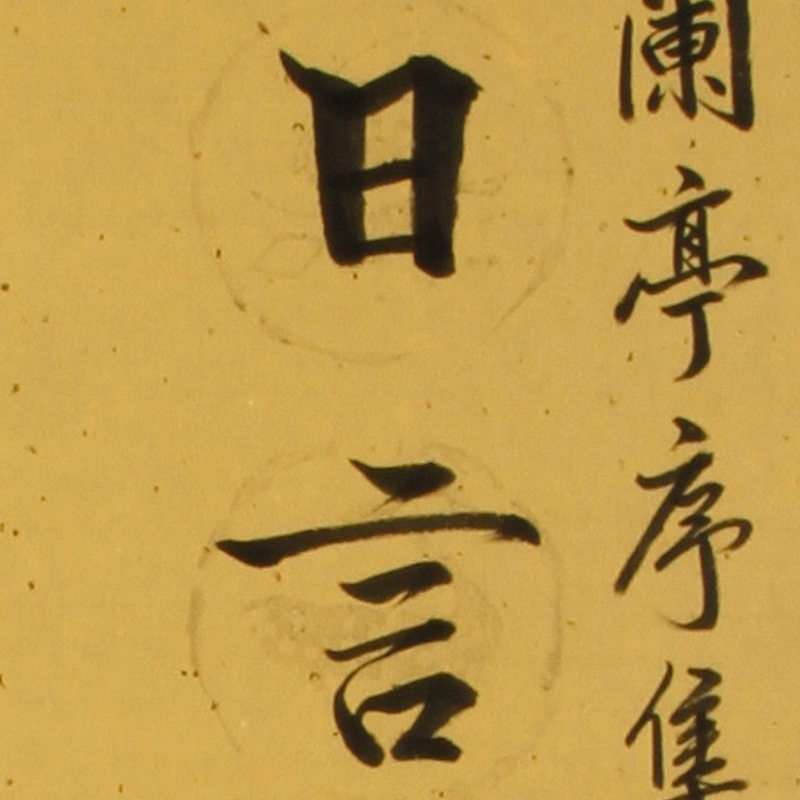 蘭亭序集
日言